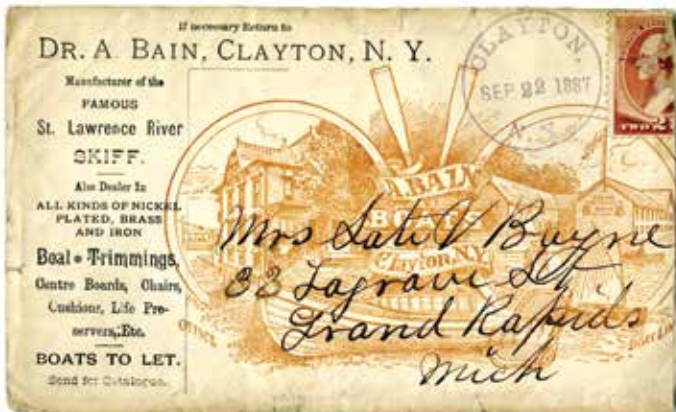 If necessary Return to
DR. A. BAIN, CLAYTON, N. Y.
Manufacturer of the
FAMOUS
St. Lawrence River
SKIFF.
Also Dealer In
ALL KINDS OF NICKEL
PLATED, BRASS
AND IRON
Boat Trimmings,
Centre Boards, Chairs,
Cushions, Life Pre-
servers, Etc.
BOATS TO LET.
Send for Catalogue.
CLAYTON.
SEP 22 1887
N.Y.
TWO 2
A. BAIN
BOATS
Clayton, N.Y.
OFFICE
Mrs V Bayne
33 Lagrave St
Grand Rapids
Mich